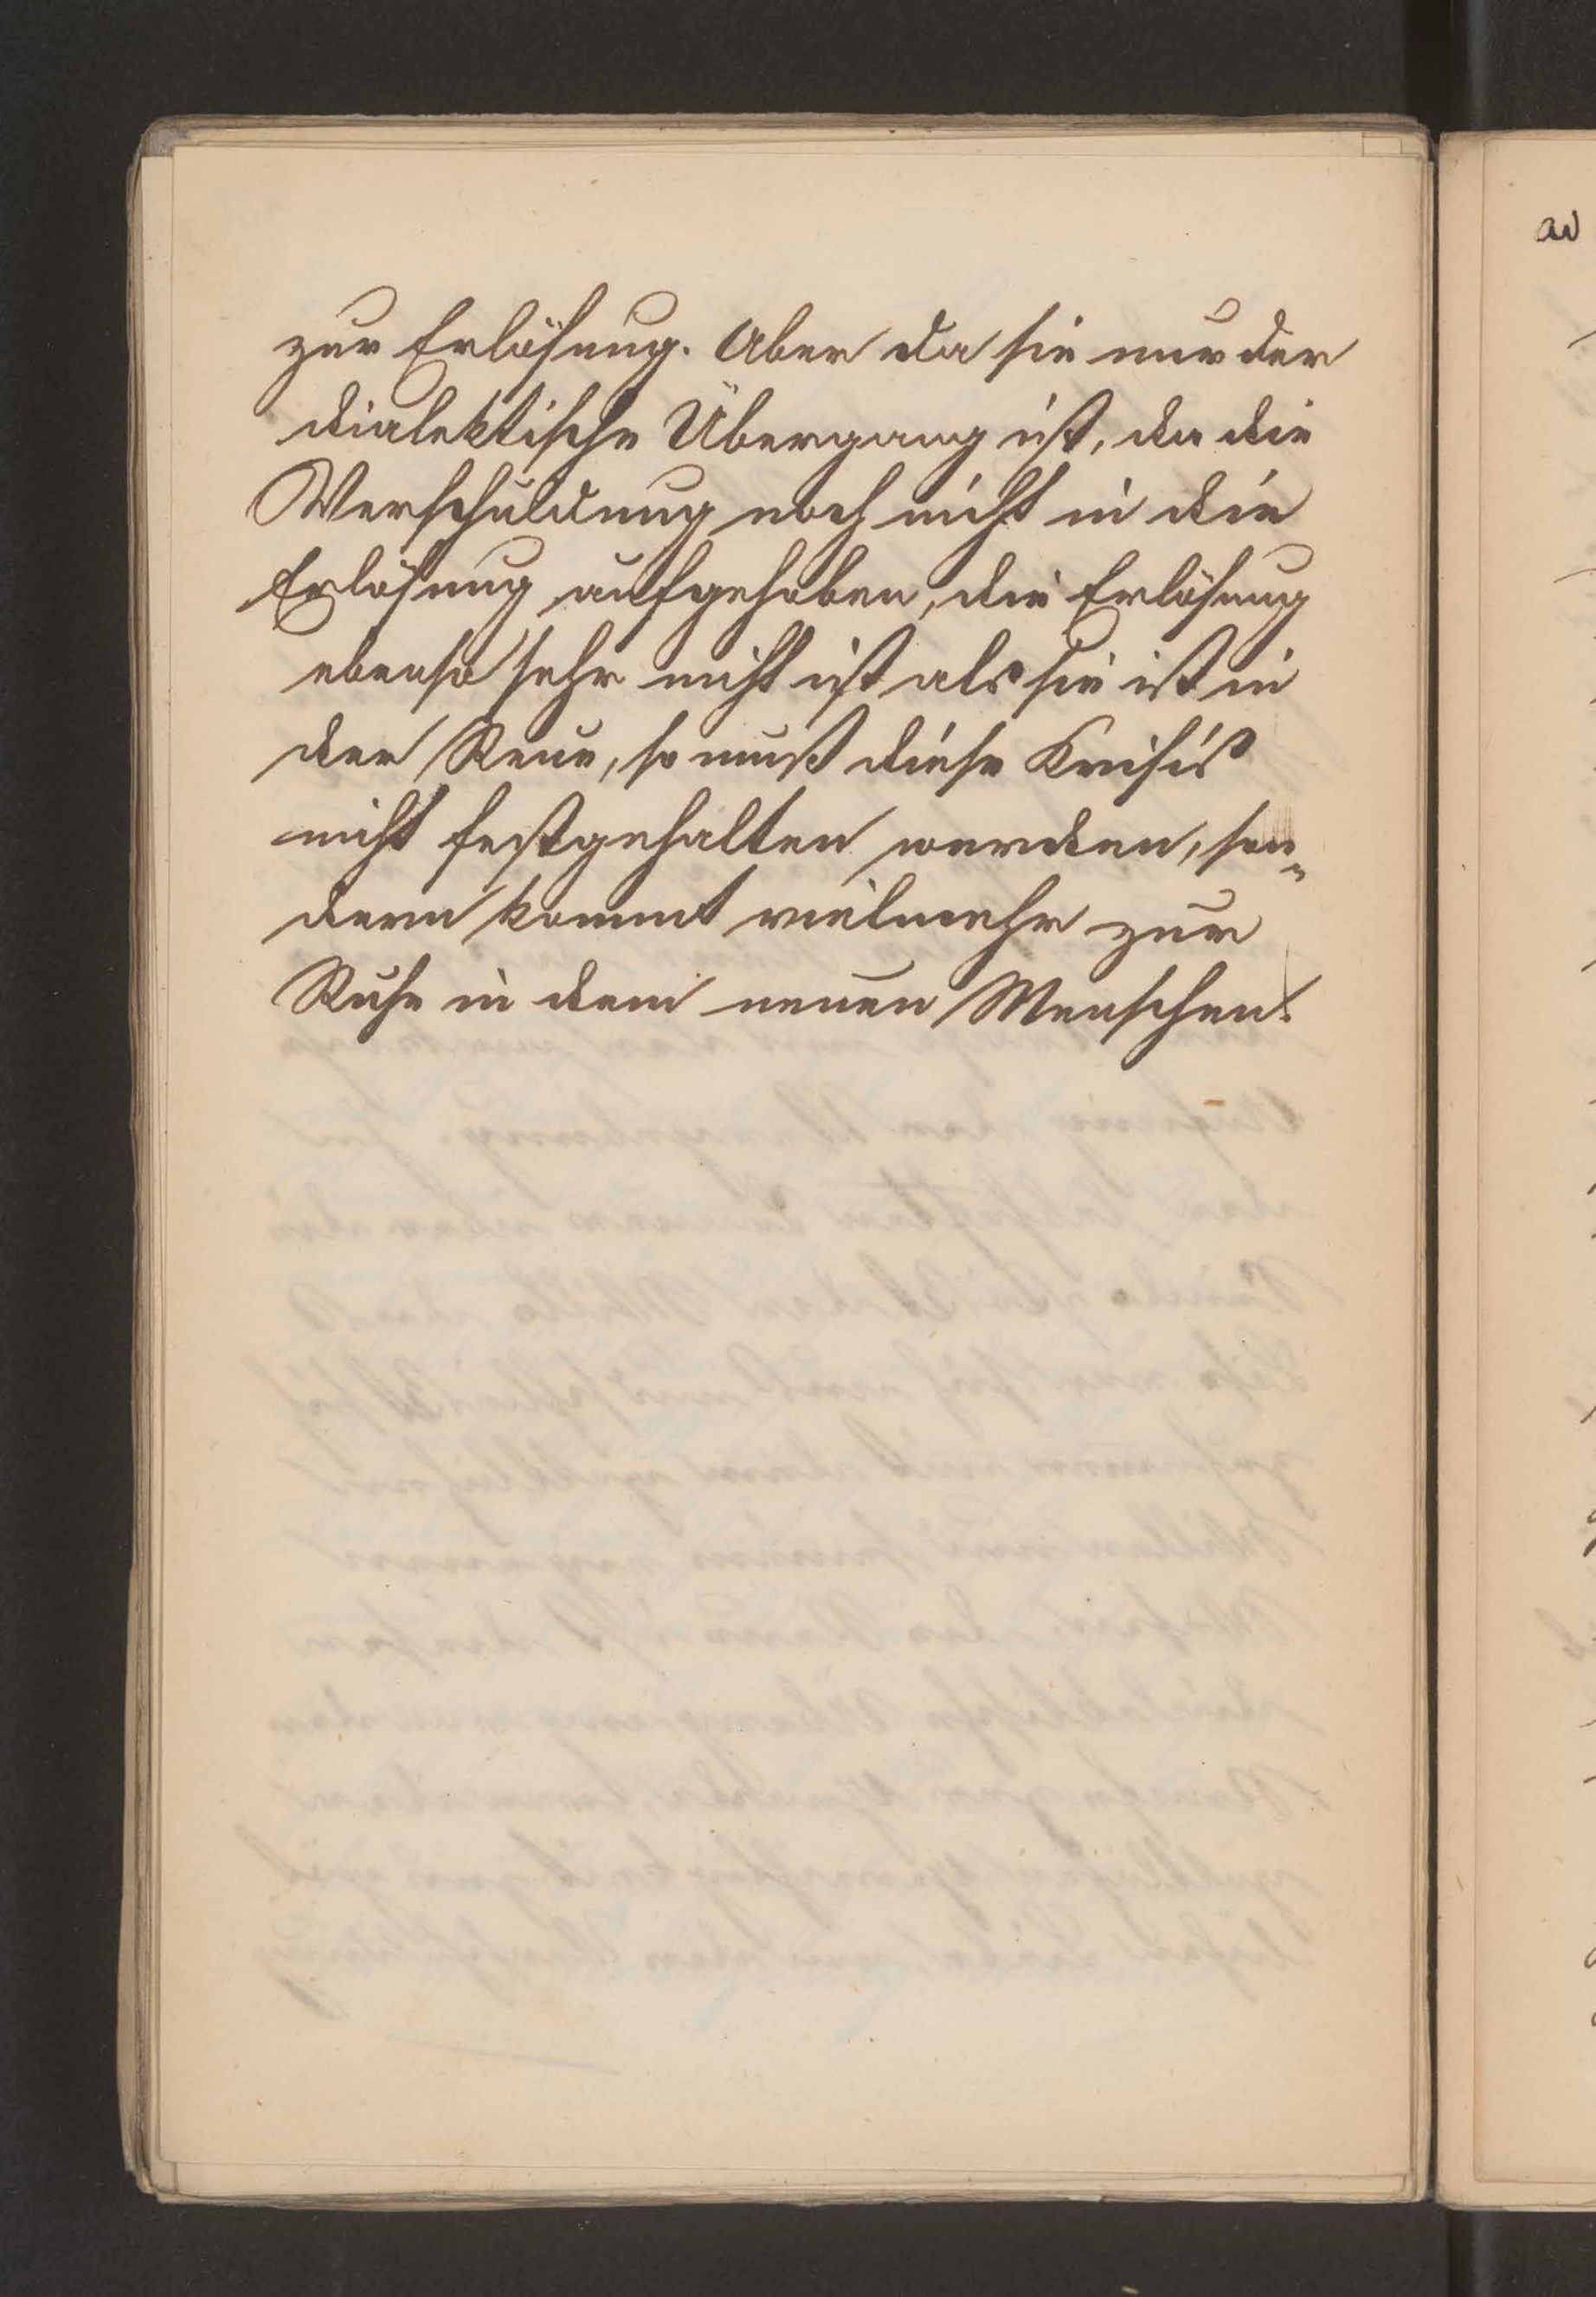 zur Erlösung. Aber da sie nur der
dialektische Übergang ist, da die
Verschuldung noch nicht in die
Erlösung aufgehoben, die Erlösung
ebenso sehr nicht ist als sie ist in
der Reue, so muß diese Krisis
nicht festgehalten werden, son„
dern kommt vielmehr zur
Ruhe in dem neuen Menschen.